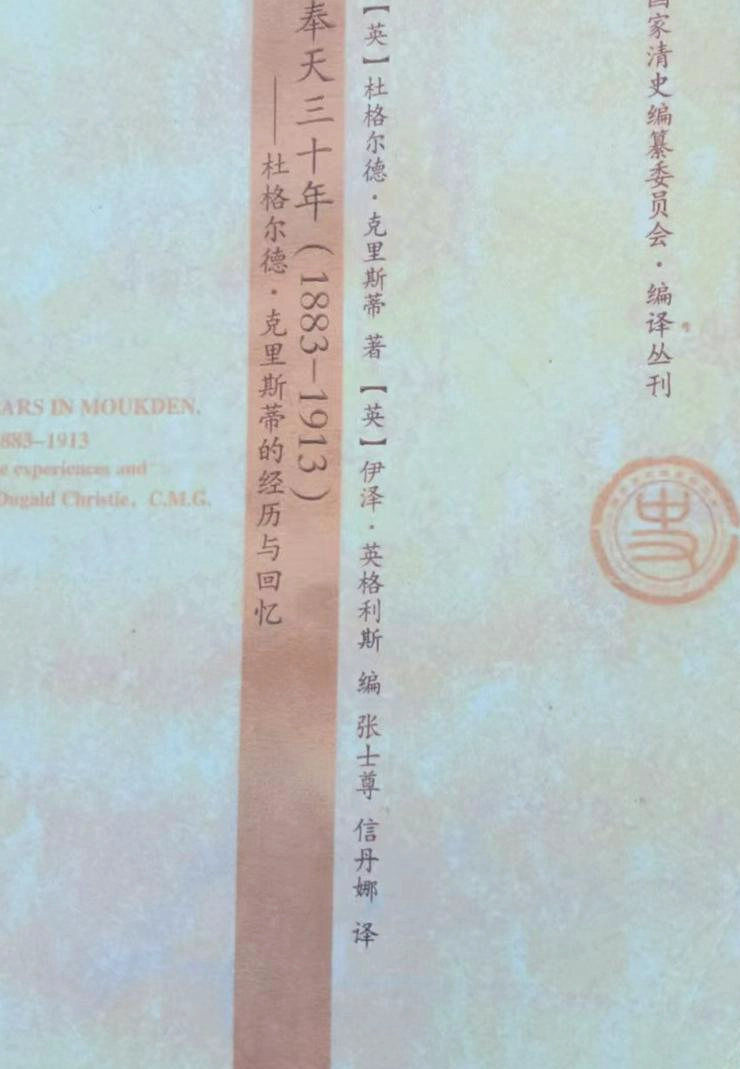 国家清史编纂委员会·编译丛刊
【英】杜格尔德·克里斯蒂 著 【英】伊泽·英格利斯 编 张士尊 信丹娜 译
奉天三十年（1883—1913）
——杜格尔德·克里斯蒂的经历与回忆
ARS IN MOUKDEN,
883–1913
e experiences and
Dugald Christie, C.M.G.
史